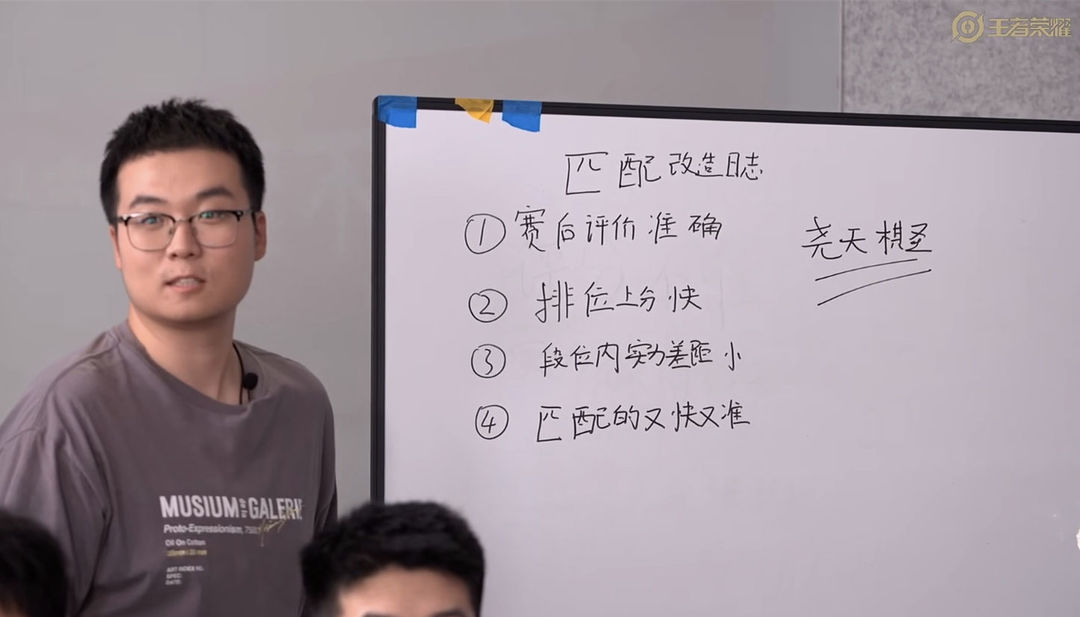 王者荣耀
匹配改造日志
①赛后评价准确
②排位上分快
③段位内实力差距小
④匹配的又快又准
尧天棋圣
MUSIUM GALERIE
Proto-Expressionism,
Oil On Cotton
ART INDEX N.
SPEC:
DATE: